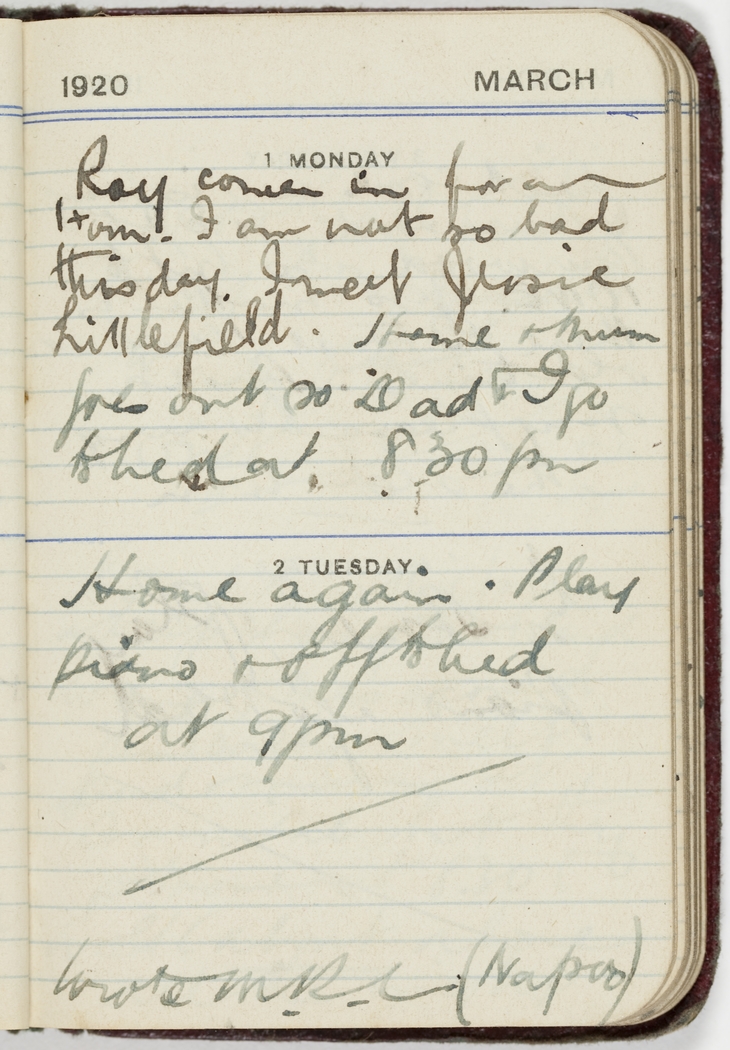 1920 MARCH
1 MONDAY
Roy comes in for an
I am not so bad
this day. I meet Jessie
Littlefield. Home & Mum
goes out so Dad & I go
to bed at 8 30 pm
2 TUESDAY
Home again. Play
piano & off to bed
at 9 pm
Wrote (Napier)